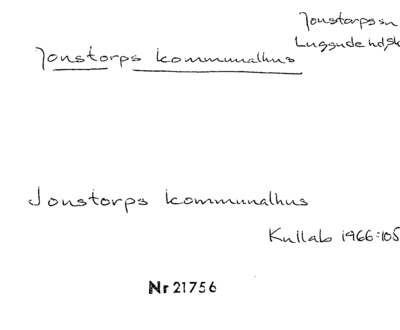 Jonstorps sn
Luggude hd, Sk
Jonstorps kommunalhus
Jonstorps kommunalhus
Kullab 1966:105
Nr 21756